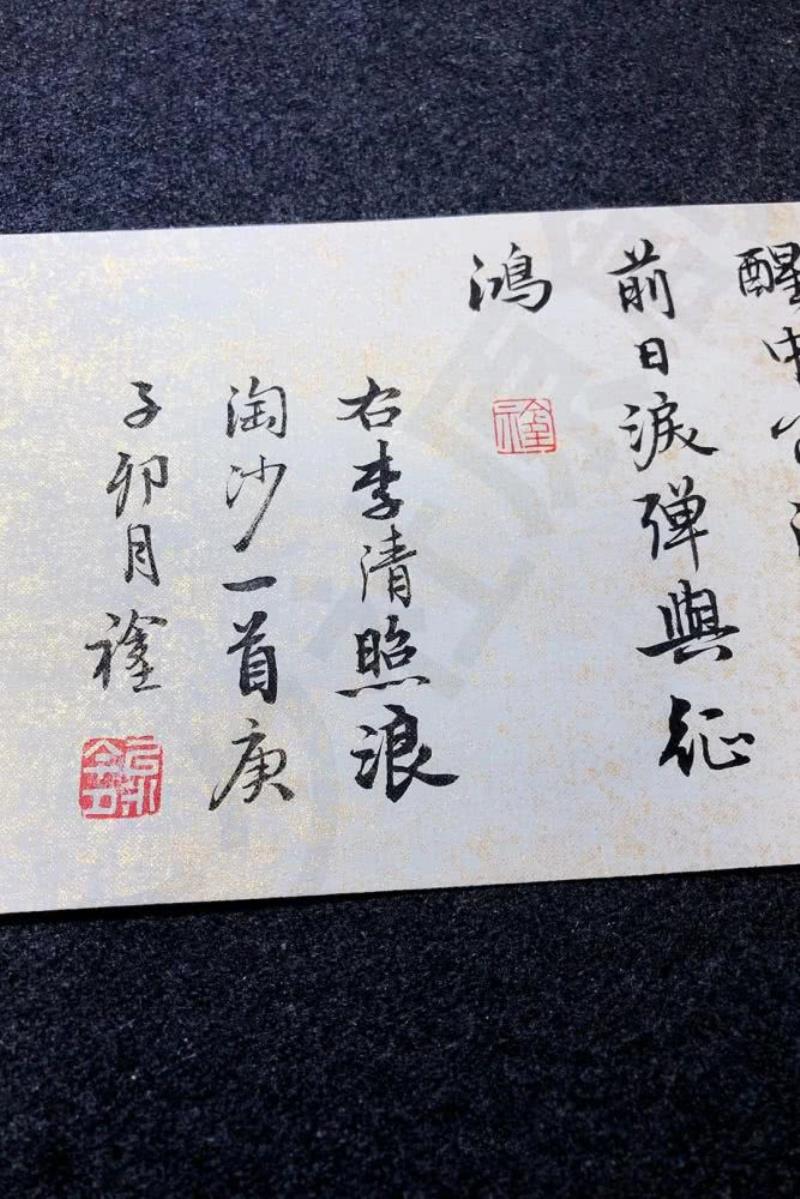 醒中
前日淚弹與征
鴻
右李清照浪
淘沙一首庚
子卯月